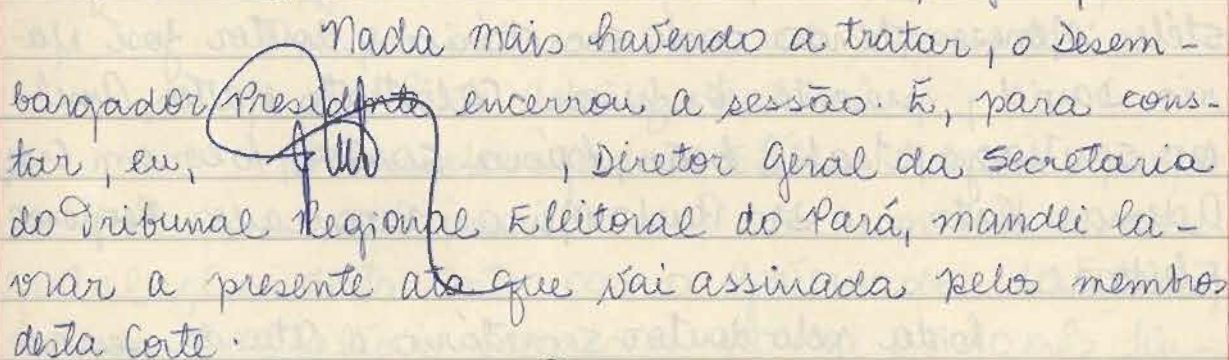 Nada mais havendo a tratar, o Desem-
bargador Presidente encerrou a sessão. E, para cons-
tar, eu, , Diretor Geral da Secretaria
do Tribunal Regional Eleitoral do Pará, mandei la-
vrar a presente ata que vai assinada pelos membros
desta Corte.